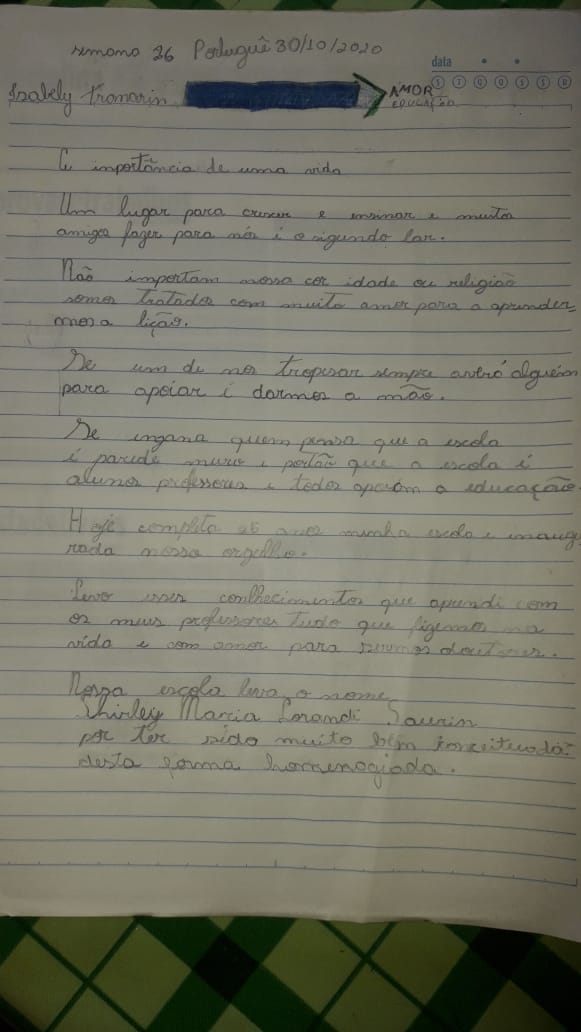 semana 26 Portuguê 30/10/2020
data
S T Q Q S S D
Isabely Tramarin
AMOR
EDUCAÇÃO
A importância de uma vida
Um lugar para crescer e ensinar e muitos
amigos fazer para nós é o sigundo lar.
Não importam nossa cor idade ou religião
somos tratados com muito amor para a aprender-
mos a lição.
Se um de nos tropesar sempre averó alguém
para apoiar i darmos a mão.
Se engana quem pensa que a escola
é parede muro e portão que a escola é
alunos professores e todos apoiam a educação.
Hoje completa 26 anos minha escola e inaugu
rada nossa orgelho.
Levo esses conlhecimentos que aprendi com
os meus professores tudo que fizemos na
vida e com amor para sermos doutores.
Nossa escola leva o nome
Shirley Marcia Lorandi Saurin
por ter sido muito bem conceituada
desta forma homenogiada.